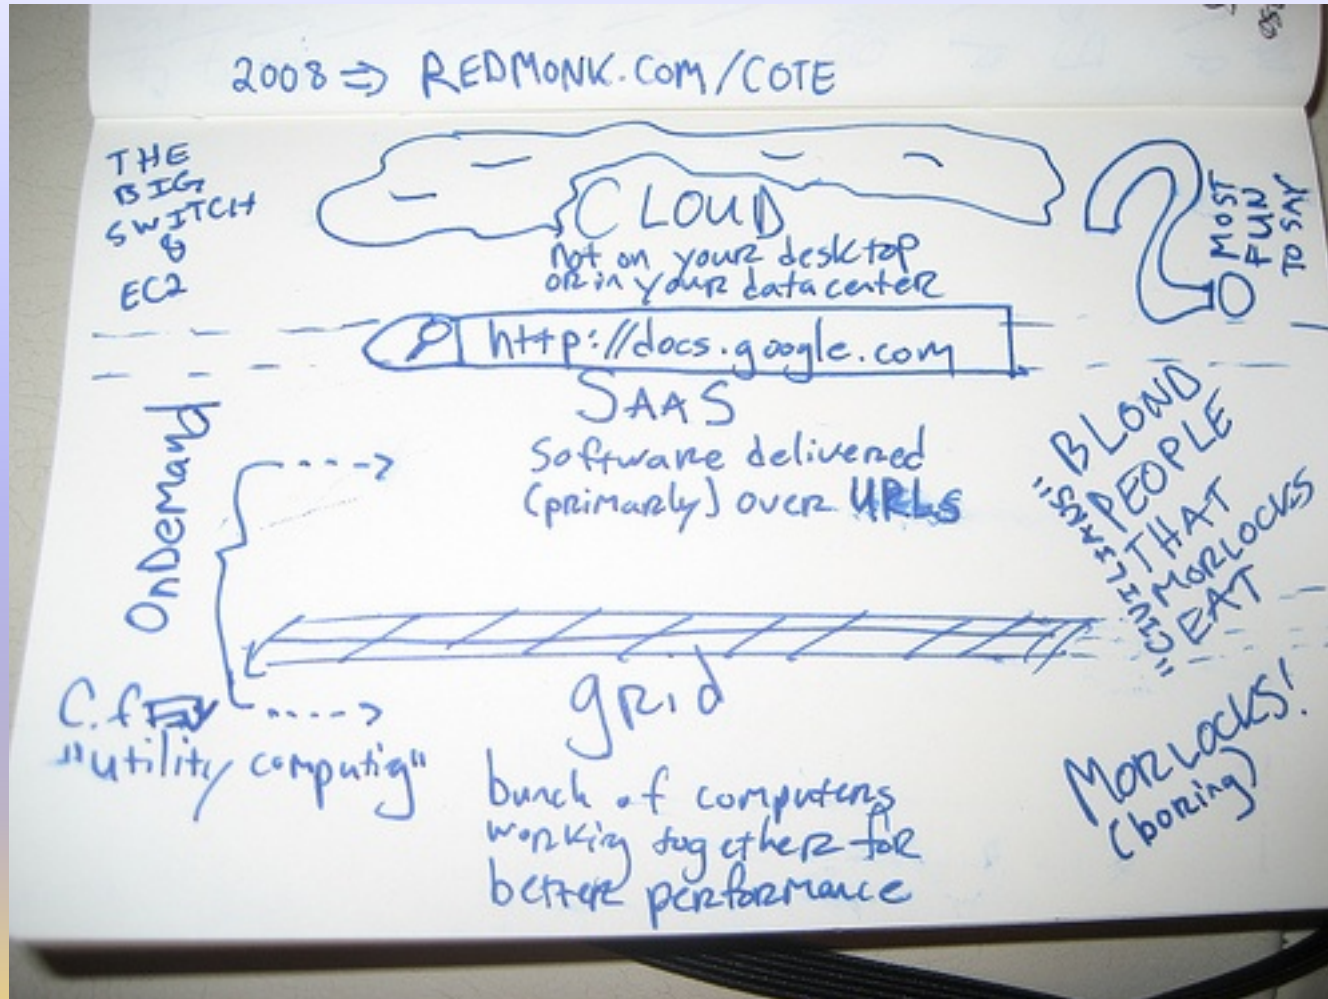 2008 => REDMONK.COM/COTE
THE
BIG
SWITCH
&
EC2
CLOUD
not on your desktop
or in your datacenter
MOST
FUN
TO SAY
http://docs.google.com
SAAS
Software delivered
(primarily) over URLs
OnDemand
"CIVILIANS"
BLOND
PEOPLE
THAT
MORLOCKS
EAT
C.f.
"utility computig"
grid
bunch of computers
working together for
better performance
MORLOCKS!
(boring)